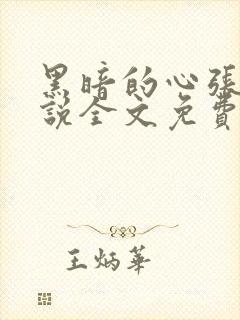 黑暗的心張
說全文免費
王炳華